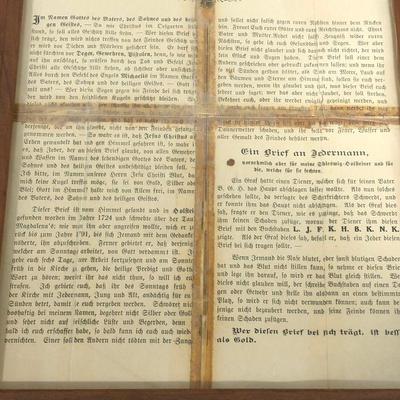 Im Namen Gottes des Vaters, des Sohnes und des heili-
gen Geistes. So wie Christus im Oelgarten
stand, so soll alles Geschütz stille stehen. Wer diesen Brief
Den
nicht fürchten vor Degen, Gewehren, Pistolen, denn so wie
auf ihn anschlägt, so müssen durch den Tod und Befehl Jesu
Christi alle Geschütze stille stehen, ob sichtbar oder unsichtbar
Alles durch den Befehl des Engels Michaelis im Namen Gottes
des Vaters, des Sohnes und des heiligen Geistes. Gott sei
mit uns! Wer diesen Segen gegen die Feinde bei sich trägt
der wird von den feindlichen Kugeln geschützt bleiben.
derjenige, der an ihn glaubt, nicht von den Feinden
genommen werden. So wahr es ist, daß Jesus Christus auf
Erden gewandelt hat und gen Himmel gefahren ist, so wahr ist
jeder, der an diesen Brief glaubt, von allen Gewehren
und Waffen im Namen des lebendigen Gottes des Vaters, des
Sohnes und des heiligen Geistes unbeschädigt bleiben soll.
Ich bitte im Namen unsers Herrn Jesu Christi Blut, daß
mich keine Kugel treffen möge, sei sie von Gold, Silber oder
Blei; Gott im Himmel halte mich von Allem frei, im Namen
des Vaters, des Sohnes und des heiligen Geistes.
Dieser Brief ist vom Himmel gesandt und in Holstein
gefunden worden im Jahre 1724 und schwebte über der Taufe
Magdalena's; wie man ihn aber angreifen wollte, wich er zu-
rück bis zum Jahre 1791, bis sich Jemand mit dem Gedanken
näherte, ihn abzuschreiben. Ferner gebietet er, daß derjenige,
welcher am Sonntage arbeitet, von Gott verdammt ist. Ich
gebe euch sechs Tage, eure Arbeit fortzusetzen und am Sonntag
früh in die Kirche zu gehen, die heilige Predigt und Gottes
Wort zu hören; werdet ihr das nicht thun, so will ich euch
strafen. Ich gebiete euch, daß ihr des Sonntags früh in
die Kirche mit Jedermann, Jung und Alt, andächtig für eure
Sünden betet, damit sie euch vergeben werden. Schwöret nicht
boshaftig bei meinem Namen, begehret nicht Silber oder Gold
und sehet nicht auf fleischliche Lüste und Begierden, denn so
bald ich euch erschaffen habe, so bald kann ich euch auch wieder
vernichten. Einer soll den Andern nicht tödten mit der Zunge
und sollet nicht falsch gegen euren Nächsten hinter dem Rücken
sein. Freuet euch eurer Güter und eures Reichthums nicht. Ehret
Vater und Mutter. Redet nicht falsch Zeugniß wider euren
Nächsten, so gebe ich euch Gesundheit und Segen. Wer aber
diesem Brief nicht glaubt und sich nicht darnach richtet, der
wird kein Glück und Segen haben. Diesen Brief soll einer dem
Andern geschrieben oder gedruckt zukommen lassen, und wenn
ihr so viel Sünden gethan hättet, als Sand am Meere, Laub auf
den Bäumen und Sterne am Himmel sind, sollen sie euch
vergeben werden, wenn ihr glaubt und thut, was dieser Brief
euch lehret und saget; wer aber das nicht glaubt, der soll sterben.
Bekehret euch, oder ihr werdet ewiglich gepeinigt werden, und
Donnerwetter schaden, und ihr seit vor Feuer, Wasser und
aller Gewalt des Feindes behütet werden.
Ein Brief an Jedermann,
vornehmlich aber für meine Schleswig-Holsteiner und für
die, welche für sie fechten.
Ein Graf hatte einen Diener, welcher sich für seinen Vater
B. G. H. das Haupt abschlagen lassen wollte. Als nun solches
geschehen sollte, da versagte des Scharfrichters Schwerdt, und
er konnte ihm das Haupt nicht abschlagen. Als der Graf dies
sah, fragte er den Diener, wie es zuginge, daß das Schwerdt
ihm keinen Schaden zufüge, worauf der Diener ihm diesen
Brief mit den Buchstaben L. J. F. K. H. B. K. N. K.
zeigte. Als der Graf dies sah, befahl er, daß ein Jeder diesen
Brief bei sich tragen sollte. —
Wenn Jemand die Nase blutet, oder sonst blutigen Schaden hat
und das Blut nicht stillen kann, so nehme er diesen Brief
und lege ihn darauf, so wird er das Blut gleich stillen. Wer
dieses nicht glauben will, der schreibe die Buchstaben auf einen De-
gen oder Gewehr und stelle ihn alsdann an einen bestimmten
Platz, so wird er sich nicht verwunden können; auch kann der-
jenige nicht bezaubert werden, und seine Feinde können ihm
keinen Schaden zufügen.
Wer diesen Brief bei sich trägt, ist besser
als Gold.